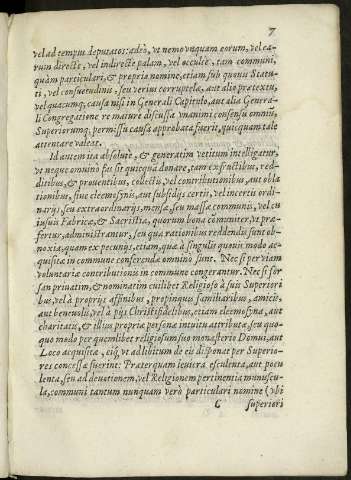 7
vel ad tempus deputatos: adeò, vt nemo vnquam eorum, vel ea-
rum directè, vel indirectè palam, vel occultè, tam communi,
quàm particulari, & propria nomine, etiam sub quouis Statu-
ti, vel consuetudinis, seu verius corruptela, aut alio prætextu,
vel quacumq; causa nisi in Generali Capitulo, aut alia Genera-
li Congregatione re mature discussa vnanimi consensu omniũ,
Superiorumq; permissu causa approbata fuerit, quicquam tale
attentare valeat.
Id autem ita absolutè, & generatim vetitum intelligatur,
vt neque omnino fas sit quicquã donare, tam ex fructibus, red-
ditibus, & prouentibus, collectis, vel contributionibus, aut obla
tionibus, siue eleemosynis, aut subsidijs certis, vel incertis ordi-
narijs, seu extraordinarijs, mensæ, seu massæ communis, vel cu
iusuis Fabricæ, & Sacristiæ, quorum bona cõmuniter, vt præ-
fertur, administrantur, seu quæ rationibus reddendis sunt ob-
noxia, quam ex pecunijs, etiam, quæ à singulis quouis modo ac-
quisitæ in commune conferendæ omnino sunt. Nec si per viam
voluntariæ contributionis in commune congerantur. Nec si for
san priuatim, & nominatim cuilibet Religioso à suis Superiori
bus, vel à proprijs affinibus, propinquis familiaribus, amicis,
aut beneuolis, vel à pijs Christifidelibus, etiam eleemosynæ, aut
charitatis, & illius propriæ personæ intuitu attributa, seu quo-
quo modo per quemlibet religiosum suo monasterio Domui, aut
Loco acquisita, eiq; vt ad libitum de eis disponat per Superio-
res concessa fuerint: Præterquam leuiora esculenta, aut pocu
lenta, seu ad deuotionem, vel Religionem pertinentia munuscu-
la, communi tantum nunquam verò particulari nomine (vbi
C superiori